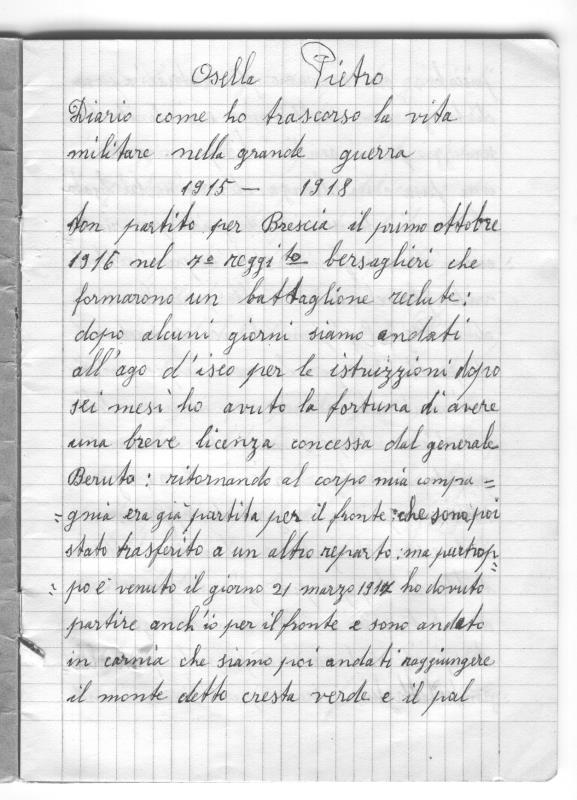 Osella Pietro
Diario come ho trascorso la vita
militare nella grande guerra
1915 - 1918
son partito per Brescia il primo ottobre
1916 nel 7º reggito bersaglieri che
formarono un battaglione reclute:
dopo alcuni giorni siamo andati
all'ago d'iseo per le istruizzioni dopo
sei mesi ho avuto la fortuna di avere
una breve licenza concessa dal generale
Beruto: ritornando al corpo mia compa =
= gnia era già partita per il fronte: che sono poi
stato trasferito a un altro reparto: ma purtrop =
= po è venuto il giorno 21 marzo 1917 ho dovuto
partire anch'io per il fronte e sono andato
in carnia che siamo poi andati raggiungere
il monte detto cresta verde e il pal